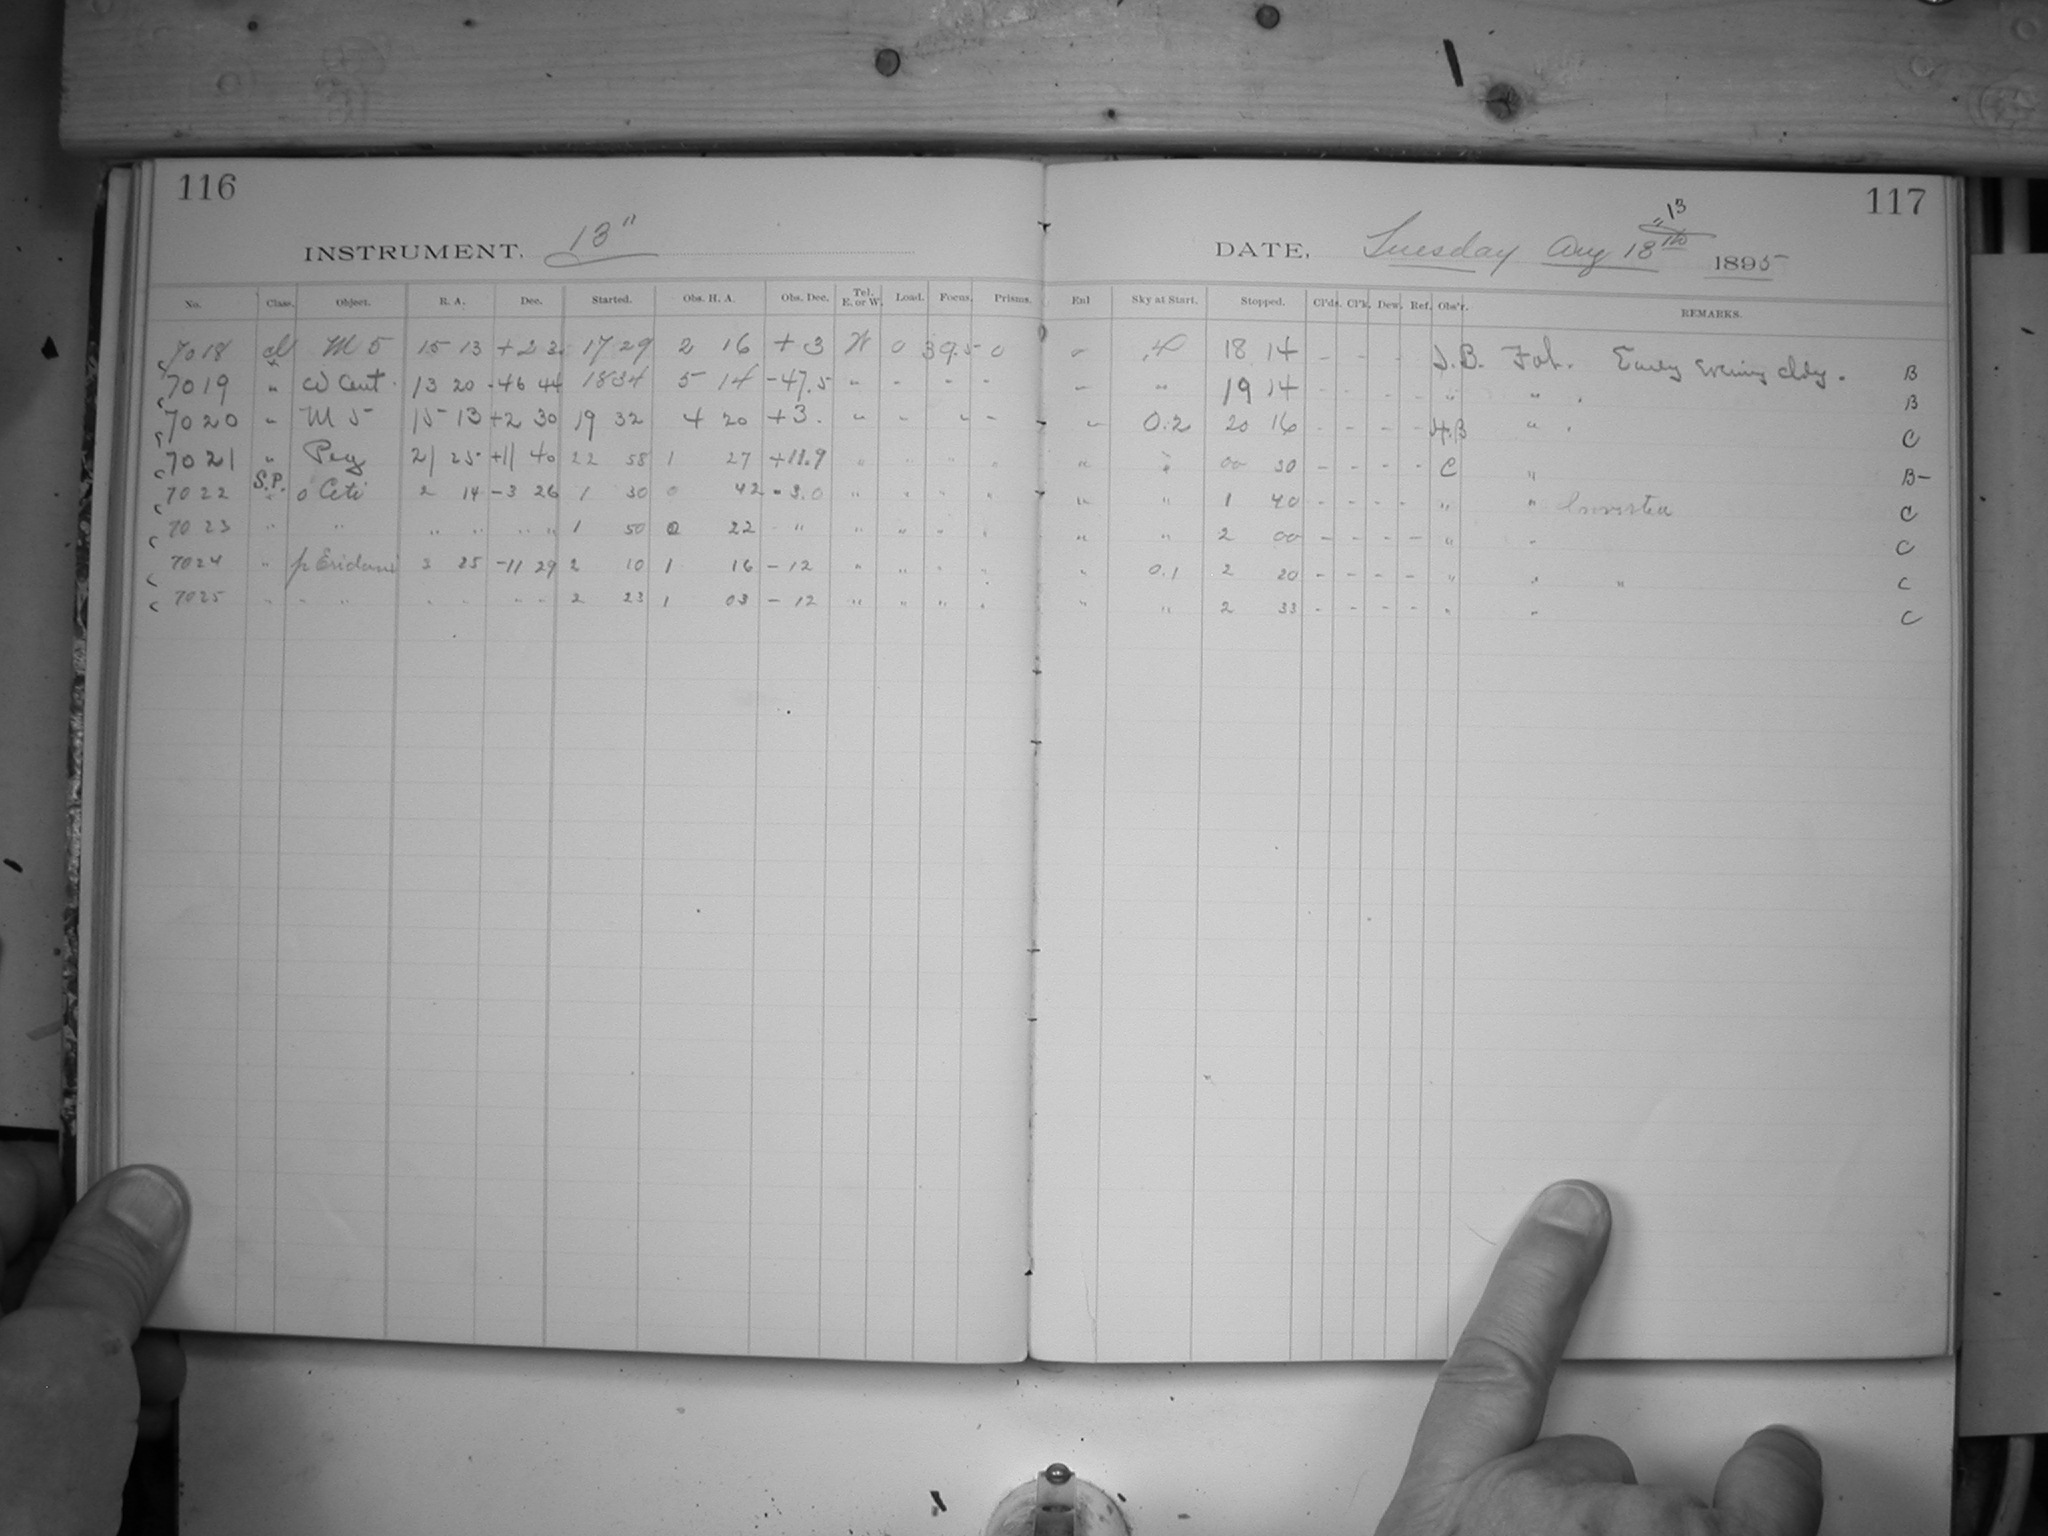 116
INSTRUMENT. 13"
No. Class. Object. R. A. Dec. Started. Obs. H. A. Obs. Dec. Tel. E. or W. Load. Focus. Prisms.
7018 Cl M 5 15 13 +2 3 17 29 2 16 +3 W 0 39.5 0
7019 " ω Cent. 13 20 -46 44 18 34 5 14 -47.5 " - - -
7020 " M 5 15 13 +2 30 19 32 4 20 +3. " - " -
7021 " Peg 21 25 +11 40 22 58 1 27 +11.9 " " " "
7022 S.P. o Ceti 2 14 -3 26 1 30 0 42 -3.0 " " " "
7023 " " " " " " 1 50 0 22 " " " " "
7024 " p Eridani 3 25 -11 29 2 10 1 16 -12 " " " "
7025 " " " " " " " 2 23 1 03 -12 " " " "
117
DATE, Tuesday Aug 18th "13 1895
Enl Sky at Start. Stopped. Cl'ds. Cl'k. Dew. Ref. Obs'r. REMARKS.
0 .4 18 14 - - - - J.B. Fol. Early evening cldy. B
- " 19 14 - - - - " " . B
- 0.2 20 16 - - - - H.B " . C
" " 00 30 - - - - C " B-
" " 1 40 - - - - " " Inverted C
" " 2 00 - - - - " " C
" 0.1 2 20 - - - - " " " C
" " 2 33 - - - - " " C